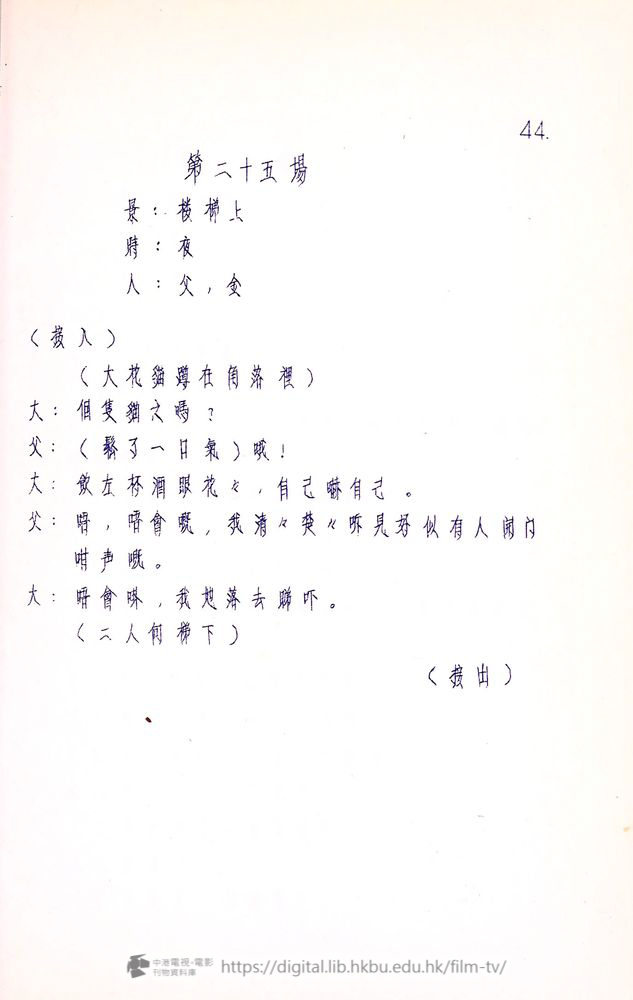 44.
第二十五場
景：楼梯上
時：夜
人：父，金
（接入）
（大花貓蹲在角落裡）
大：個隻貓之嗎？
父：（鬆了一口氣）哦！
大：飲左杯酒眼花々，自己嚇自己。
父：唔，唔會嘅，我清々楚々听見好似有人開门
咁声嘅。
大：唔會啩，我趁落去睇吓。
（二人向梯下）
（接出）
中港電視·電影
刊物資料庫
https://digital.lib.hkbu.edu.hk/film-tv/